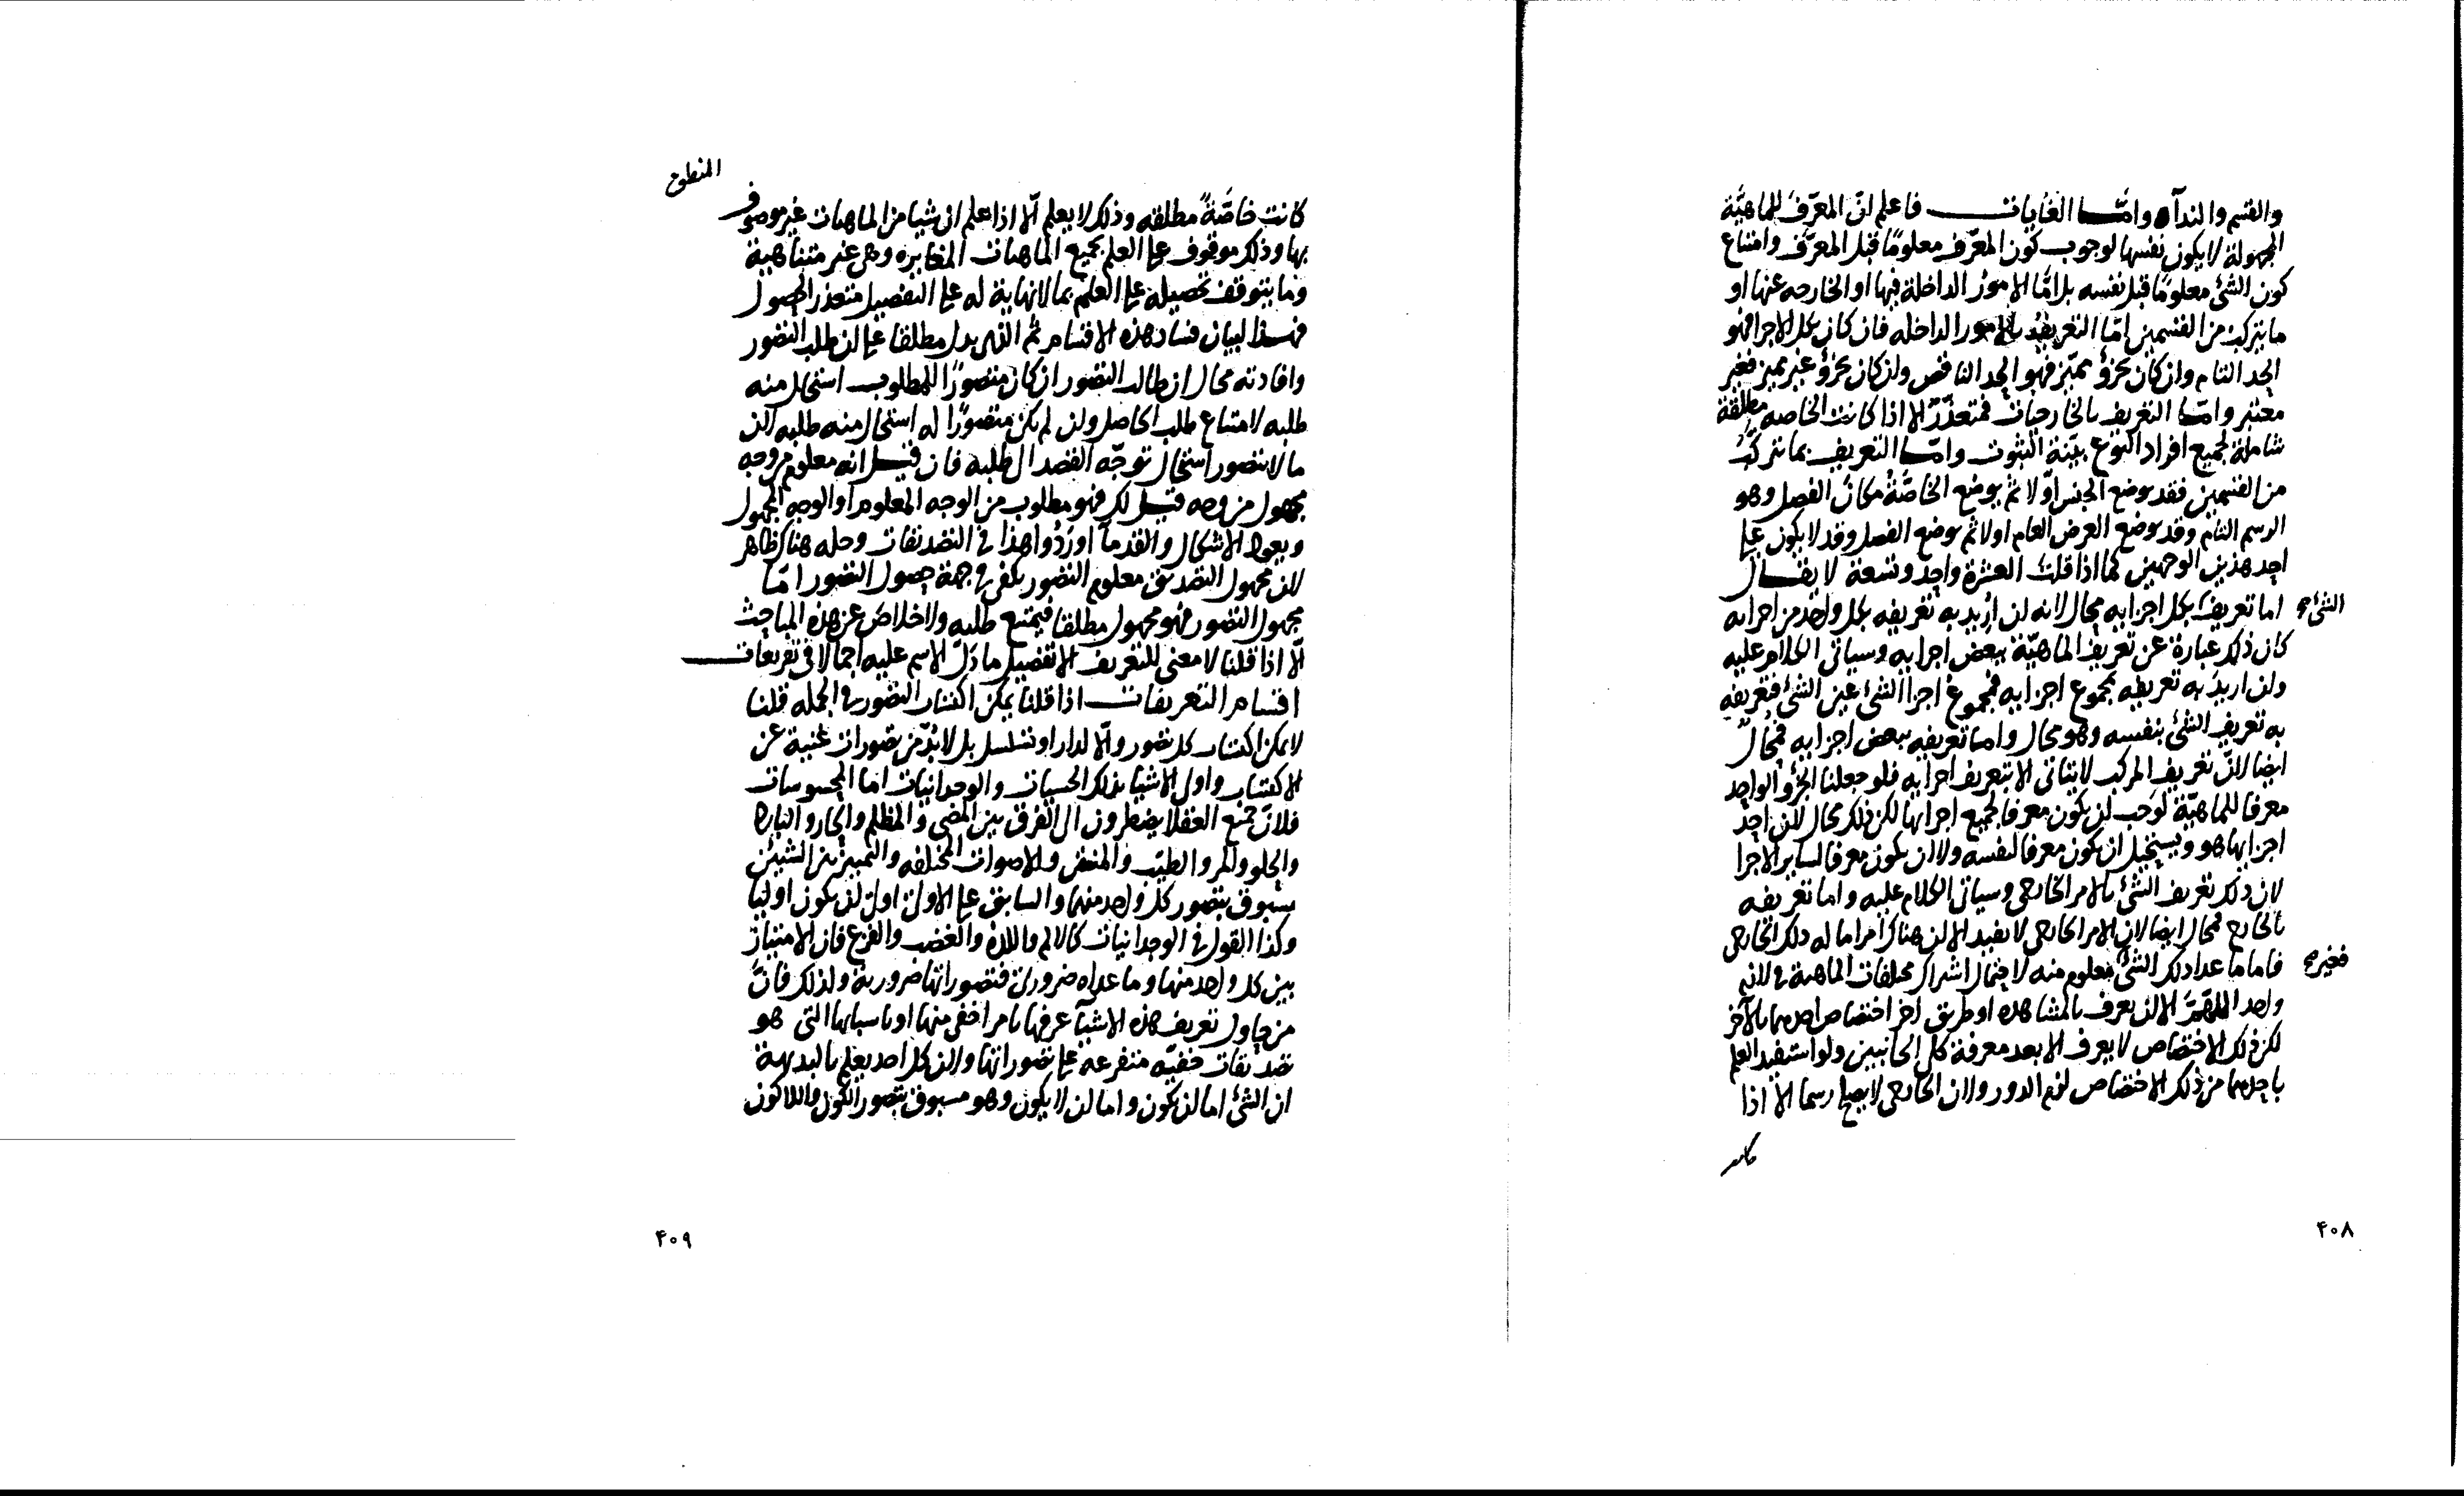 والقسم والندآء وامّا الغايات فاعلم انّ المعرّف للماهيّة
المجهولة لا يكون نفسها لوجوب كون المعرّف معلومًا قبل المعرَّف وامتناع
كون الشئ معلومًا قبل نفسه بل امّا الامورُ الداخلة فيها او الخارجه عنها او
ما يتركب من القسمين امّا التعريف بالامور الداخله فان كان بكل الاجزا فهو
الحد التام وان كان بجزؤ مميّز فهو الحد الناقص ولن كان بجزؤ غير مميز فغير
معتبر وامّا التعريف بالخارجيات فمتعذّر الا اذا كانت الخاصه مطلقة
شاملة لجميع افراد النوع بيّنة الثبوت وامّا التعريف بما يتركّبُ
من القسمين فقد يوضع الجنس اوّلا ثمّ يوضع الخاصّةُ مكان الفصل وهو
الرسم التام وقد يوضع العرض العام اولا ثم يوضع الفصل وقد لا يكون على
احد هذين الوجهين كما اذا قلت العشرة واحد وتسعة لا يقال
اما تعريف الشئ بكل اجزايه محال لانه لن اُريد به تعريفه بكل واحد من اجزايه
كان ذلك عبارة عن تعريف الماهيّة ببعض اجزايه وسياتى الكلام عليه
ولن اريدَ به تعريفه بمجموع اجزايه فمجموع اجزا الشئ عين الشئ فتعريفه
به تعريف الشئ بنفسه وهو محال واما تعريفه ببعض اجزايه فمحالٌ
ايضا لانّ تعريف المركب لا يتاتى الا بتعريف اجزايه فلو جعلنا الجزؤ الواحد
معرفا للماهيّة لوَجَب لن يكون معرفا لجميع اجزايها لكن ذلك محال لان احد
اجزايها هو ويستحيل ان يكون معرفا لنفسه ولا ان يكون معرفا لساير الاجزا
لان ذلك تعريف الشئ بالامر الخارجى وسياتى الكلام عليه واما تعريفه
بالخارج فمحال ايضا لان الامر الخارجى لا يفيد الا لن هناك امرا ما له ذلك الخارجى
فاما ما عدا ذلك الشئ فغير معلوم منه لاحتمال اشتراك مختلفات الماهية فى لازم
واحد اللهمّ الا لن يعرف بالمشاهده او طريق اخر اختصاص احدهما بالآخر
لكن ذلك الاختصاص لا يعرف الا بعد معرفة كل الجانبين ولو استفيد العلم
باحدهما من ذلك الاختصاص لزم الدور ولان الخارجى لا يصلح رسما الا اذا
كانت
۴۰۸
المنطق
كانت خاصّةً مطلقه وذلك لا يعلم الّا اذا علم ان شيا من الماهيات غير موصوف
بها وذلك موقوف على العلم بجميع الماهيات المغايره وهى غير متناهية
وما يتوقف تحصيله على العلم بما لا نهاية له على التفصيل متعذر الحصول
فهـذا لبيان فساد هذه الاقسام ثم الذى يدل مطلقا على لن طلب التصور
وافادته محال ان طالب التصور ان كان متصورًا للمطلوب استحال منه
طلبه لامتناع طلب الحاصل ولن لم يكن متصورًا له استحال منه طلبه لان
ما لا يتصور استحال توجّه القصد الى طلبه فان قيل انه معلوم من وجه
مجهول من وجه قيل لكم فهو مطلوب من الوجه المعلوم او الوجه المجهول
ويعود الاشكال والقدمآ اورَدُوا هذا فى التصديقات وحله هناك ظاهر
لان مجهول التصديق معلوم التصور يكفى فى جهة حصول التصور امّا
مجهول التصور فهو مجهول مطلقا فيمتنع طلبه ولا خلاص عن هذه المباحث
الّا اذا قلنا لا معنى للتعريف الا تفصيل ما دَلّ الاسم عليه اجمالا فى تفريعات
اقسام التعريفات اذا قلنا يمكن اكتساب التصور فى الجمله قلنا
لا يمكن اكتساب كل تصور والّا لدار او تسلسل بل لا بدّ من تصورات غنية عن
الاكتساب واولى الاشيا بذلك الحسيات والوجدانيات اما المحسوسات
فلانّ جميع العقلا يضطرون الى الفرق بين المضئ والمظلم والحار والبارد
والحلو والمر والطيّب والمنتن والاصوات المختلفه والتمييز بين الشيئن
مسبوق بتصور كل واحد منهما والسابق على الاولى اولى لن يكون اوليا
وكذا القول فى الوجدانيات كالالم واللذه والغضب والفزع فان الامتياز
بين كل واحد منها وما عداه ضرورىّ فتصوراتها ضرورية ولذلك فانّ
من حاول تعريف هذه الاشيآ عرفها بامر اخفى منها او باسبابها التى هو
تصديقات خفيّه متفرعة على تصوراتها ولان كل احد يعلم بالبديهة
ان الشئ اما لن يكون واما لن لا يكون وهو مسبوق بتصور الكون واللاكون
۴۰۹